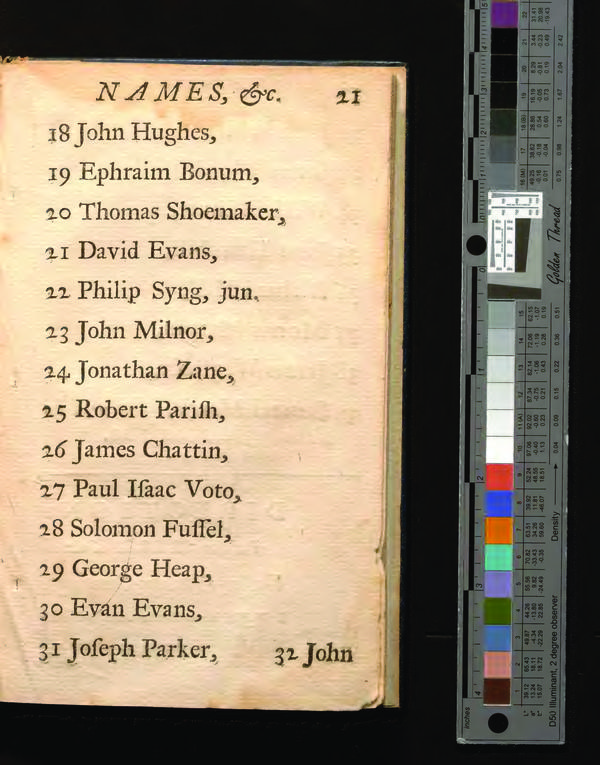 NAMES, &c. 21
18 John Hughes,
19 Ephraim Bonum,
20 Thomas Shoemaker,
21 David Evans,
22 Philip Syng, jun.
23 John Milnor,
24 Jonathan Zane,
25 Robert Pariſh,
26 James Chattin,
27 Paul Iſaac Voto,
28 Solomon Fuſſel,
29 George Heap,
30 Evan Evans,
31 Joſeph Parker, 32 John
Golden Thread
Density
D50 Illuminant, 2 degree observer
inches